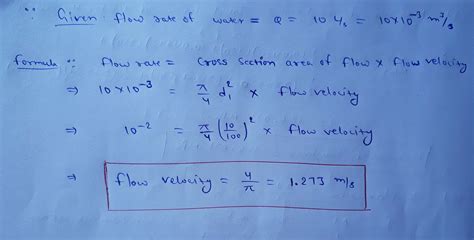 ∵ Given: flow rate of water = Q = 10 L/s = 10×10⁻³ m³/s
formula ∵ flow rate = Cross Section area of flow × flow velocity
⇒ 10×10⁻³ = π/4 d₁² × flow velocity
⇒ 10⁻² = π/4 (10/100)² × flow velocity
⇒ flow velocity = 4/π = 1.273 m/s